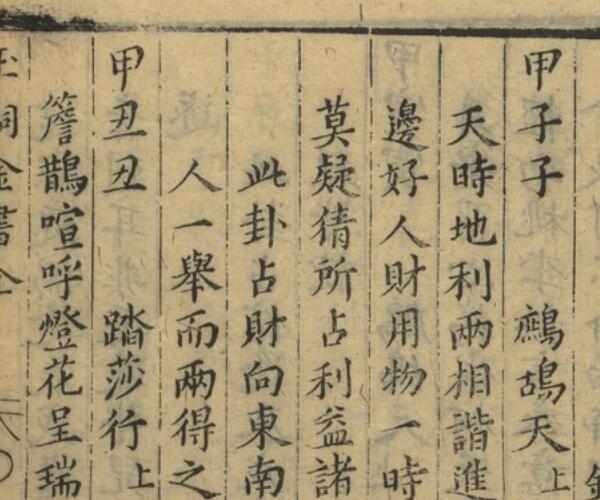 甲子子 鷓鴣天上
天時地利兩相諧進
邊好人財用物一時
莫疑猜所占利益諸
此卦占財向東南
人一舉而兩得之
甲丑丑 踏莎行上
簷鵲喧呼燈花呈瑞
洞金書全